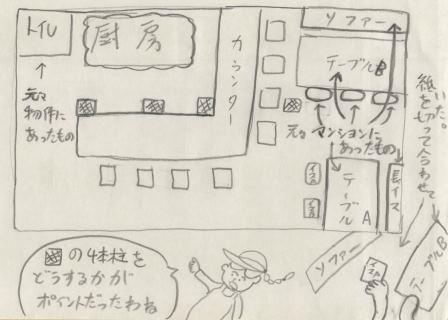 トイレ
厨房
カウンター
ソファー
テーブルB
元々
物件に
あったもの
元々マンションに
あったもの
イス
イス
テーブルA
長イス
紙を切って合わせて
いた。
ソファー
イス
テーブルB
の4本柱を
どうするかが
ポイントだったわね